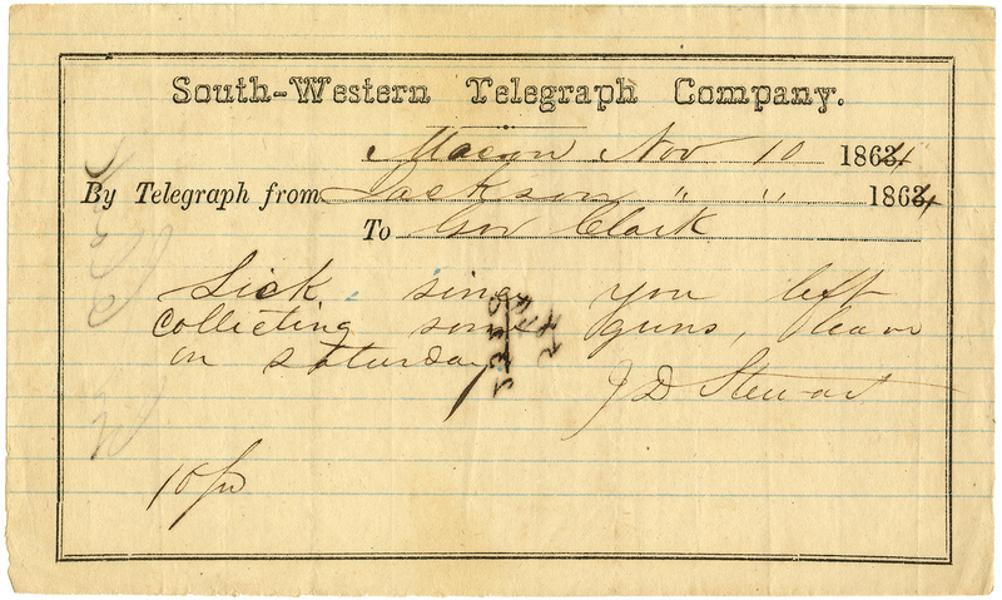 South-Western Telegraph Company.
Macon Nov 10 1864
By Telegraph from Jackson " " 1864
To Gov Clark
Sick since you left
collecting some guns, leave
on Saturday
J D Stewart
10/